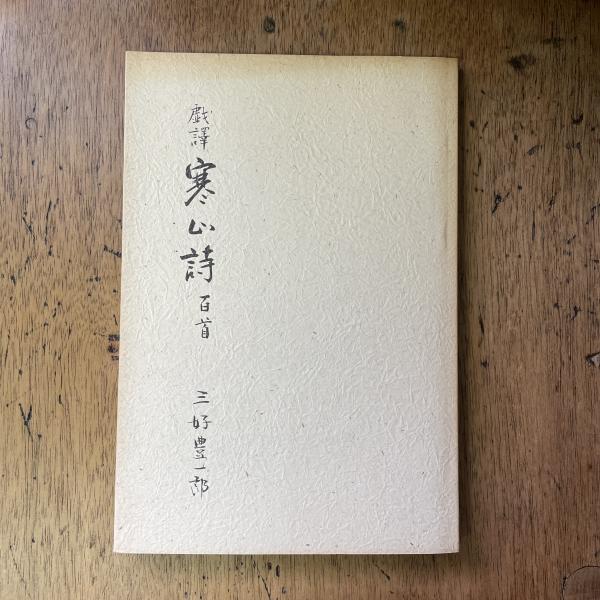 戯譯 寒山詩 百首 三好豊一郎